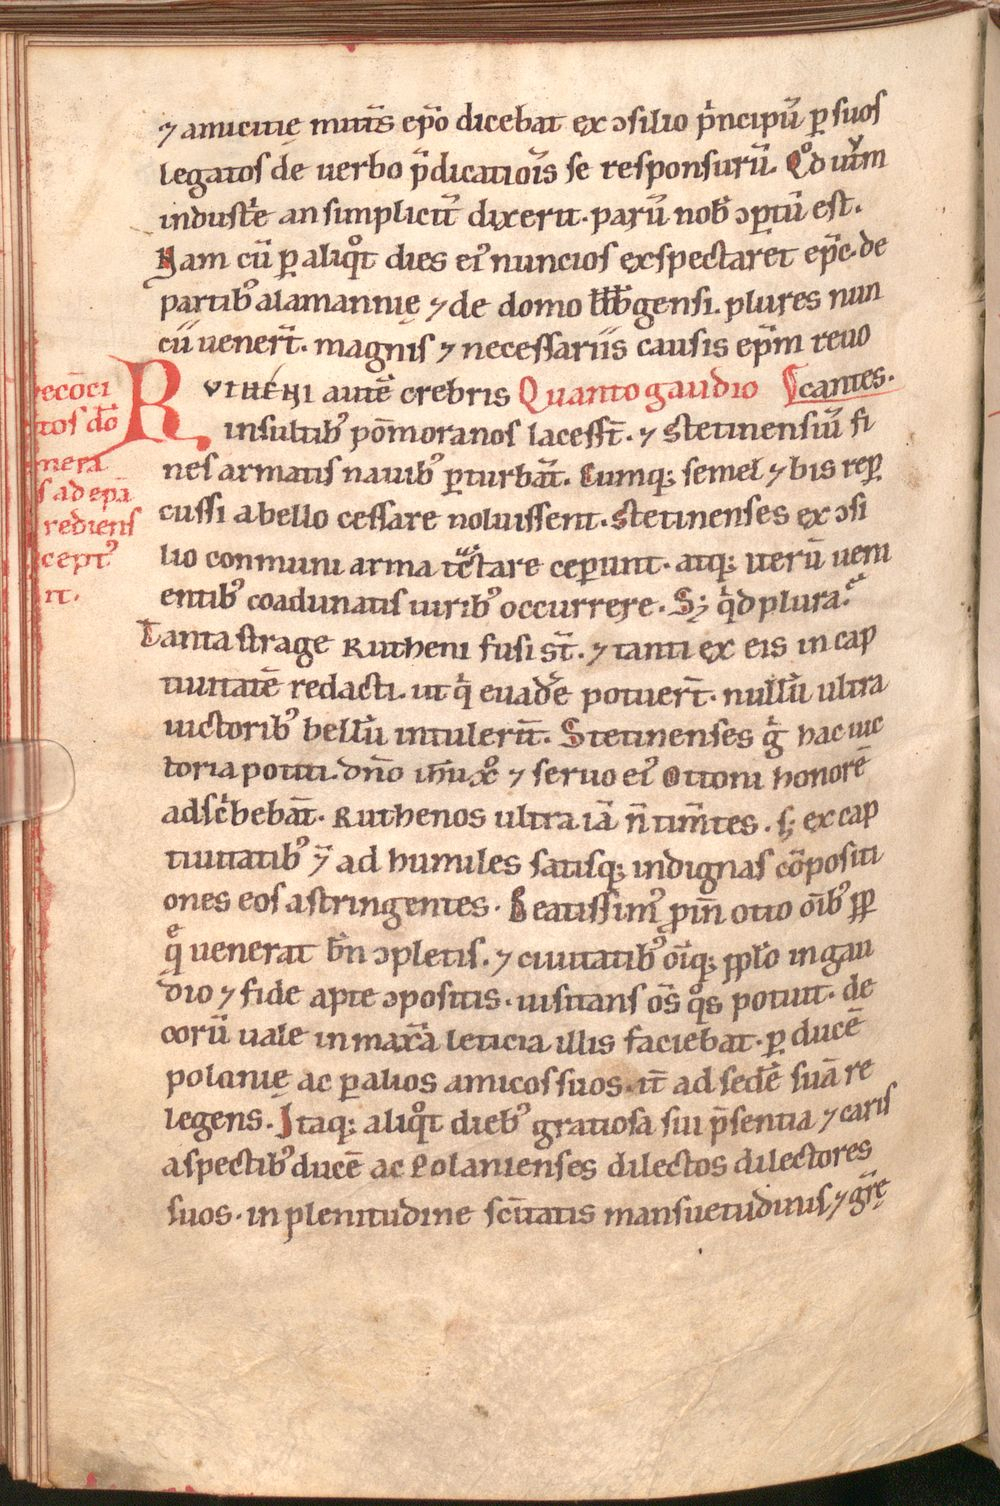 ⁊ amicitię mitt̄s ep̄o dicebat ex ↄsilio p̄ncipū ꝑ suos
legatos de uerbo p̄dicatiōis se responsurū. Qd̊ utrū
indust̄e an simplicit̄ dixerit. parū nob̄ ↄꝑtū est.
Nam cū ꝑ aliqͦt dies eiꝰ nuncios exspectaret ep̄c. de
partibꝰ alamannię ⁊ de domo bbb̄gensi. plures nun
cii uenert̄. magnis ⁊ necessariis causis ep̄m reuo
RVTHENI autē crebris Quanto gaudio cantes.
insultibꝰ pōmoranos lacesst̄. ⁊ Stetinensiū fi
nes armatis nauibꝰ ꝑturbāt. Cumq; semel ⁊ bis reꝑ
cussi a bello cessare noluissent. Stetinenses ex ↄsi
lio conmuni arma tectare ceperunt. atq; iterū ueni
entibꝰ coadunatis uiribꝰ occurrere. S; qͥd plura?
Tanta strage Rutheni fusi st̄. ⁊ tanti ex eis in cap
tiuitatē redacti. ut qͥ euade potuert̄. nullū ultra
uictoribꝰ bellū intulerit̄. Stetinenses gͥ hac uic
toria potiti. dn̄o ih̄u xp̊o ⁊ seruo eiꝰ Ottoni honorē
adsc̍bebāt. Ruthenos ultra iā n̄ tim̄tes. s; ex cap
tiuitatibꝰ ⁊̄ ad humiles satisq; indignas cōpositi
ones eos astringentes. Beatissimꝰ ꝓin̄ otto oīb̄ꝰ ꝓꝑ
qͤ uenerat bn̄ ↄpletis. ⁊ ciuitatibꝰ oīq; ppl̄o in gau
dio ⁊ fide apte ↄpositis. uisitans oſ̄ qͦs potuit. de
corū uale in maxīa leticia illis faciebat. ꝑ ducē
polonię ac ꝑ alios amicos suos. it̄ ad sedē suā re
legens. Itaq; aliqͦt diebꝰ gratiosa sui p̄sentia ⁊ caris
aspectibꝰ ducē ac Polanienses dilectos dilectores
suos. in plenitudine sc̄itatis mansuetudinis ⁊ gr̄ę
ecōci
tos do̅
mera
s ad epā
rediens
ceptꝰ
it.